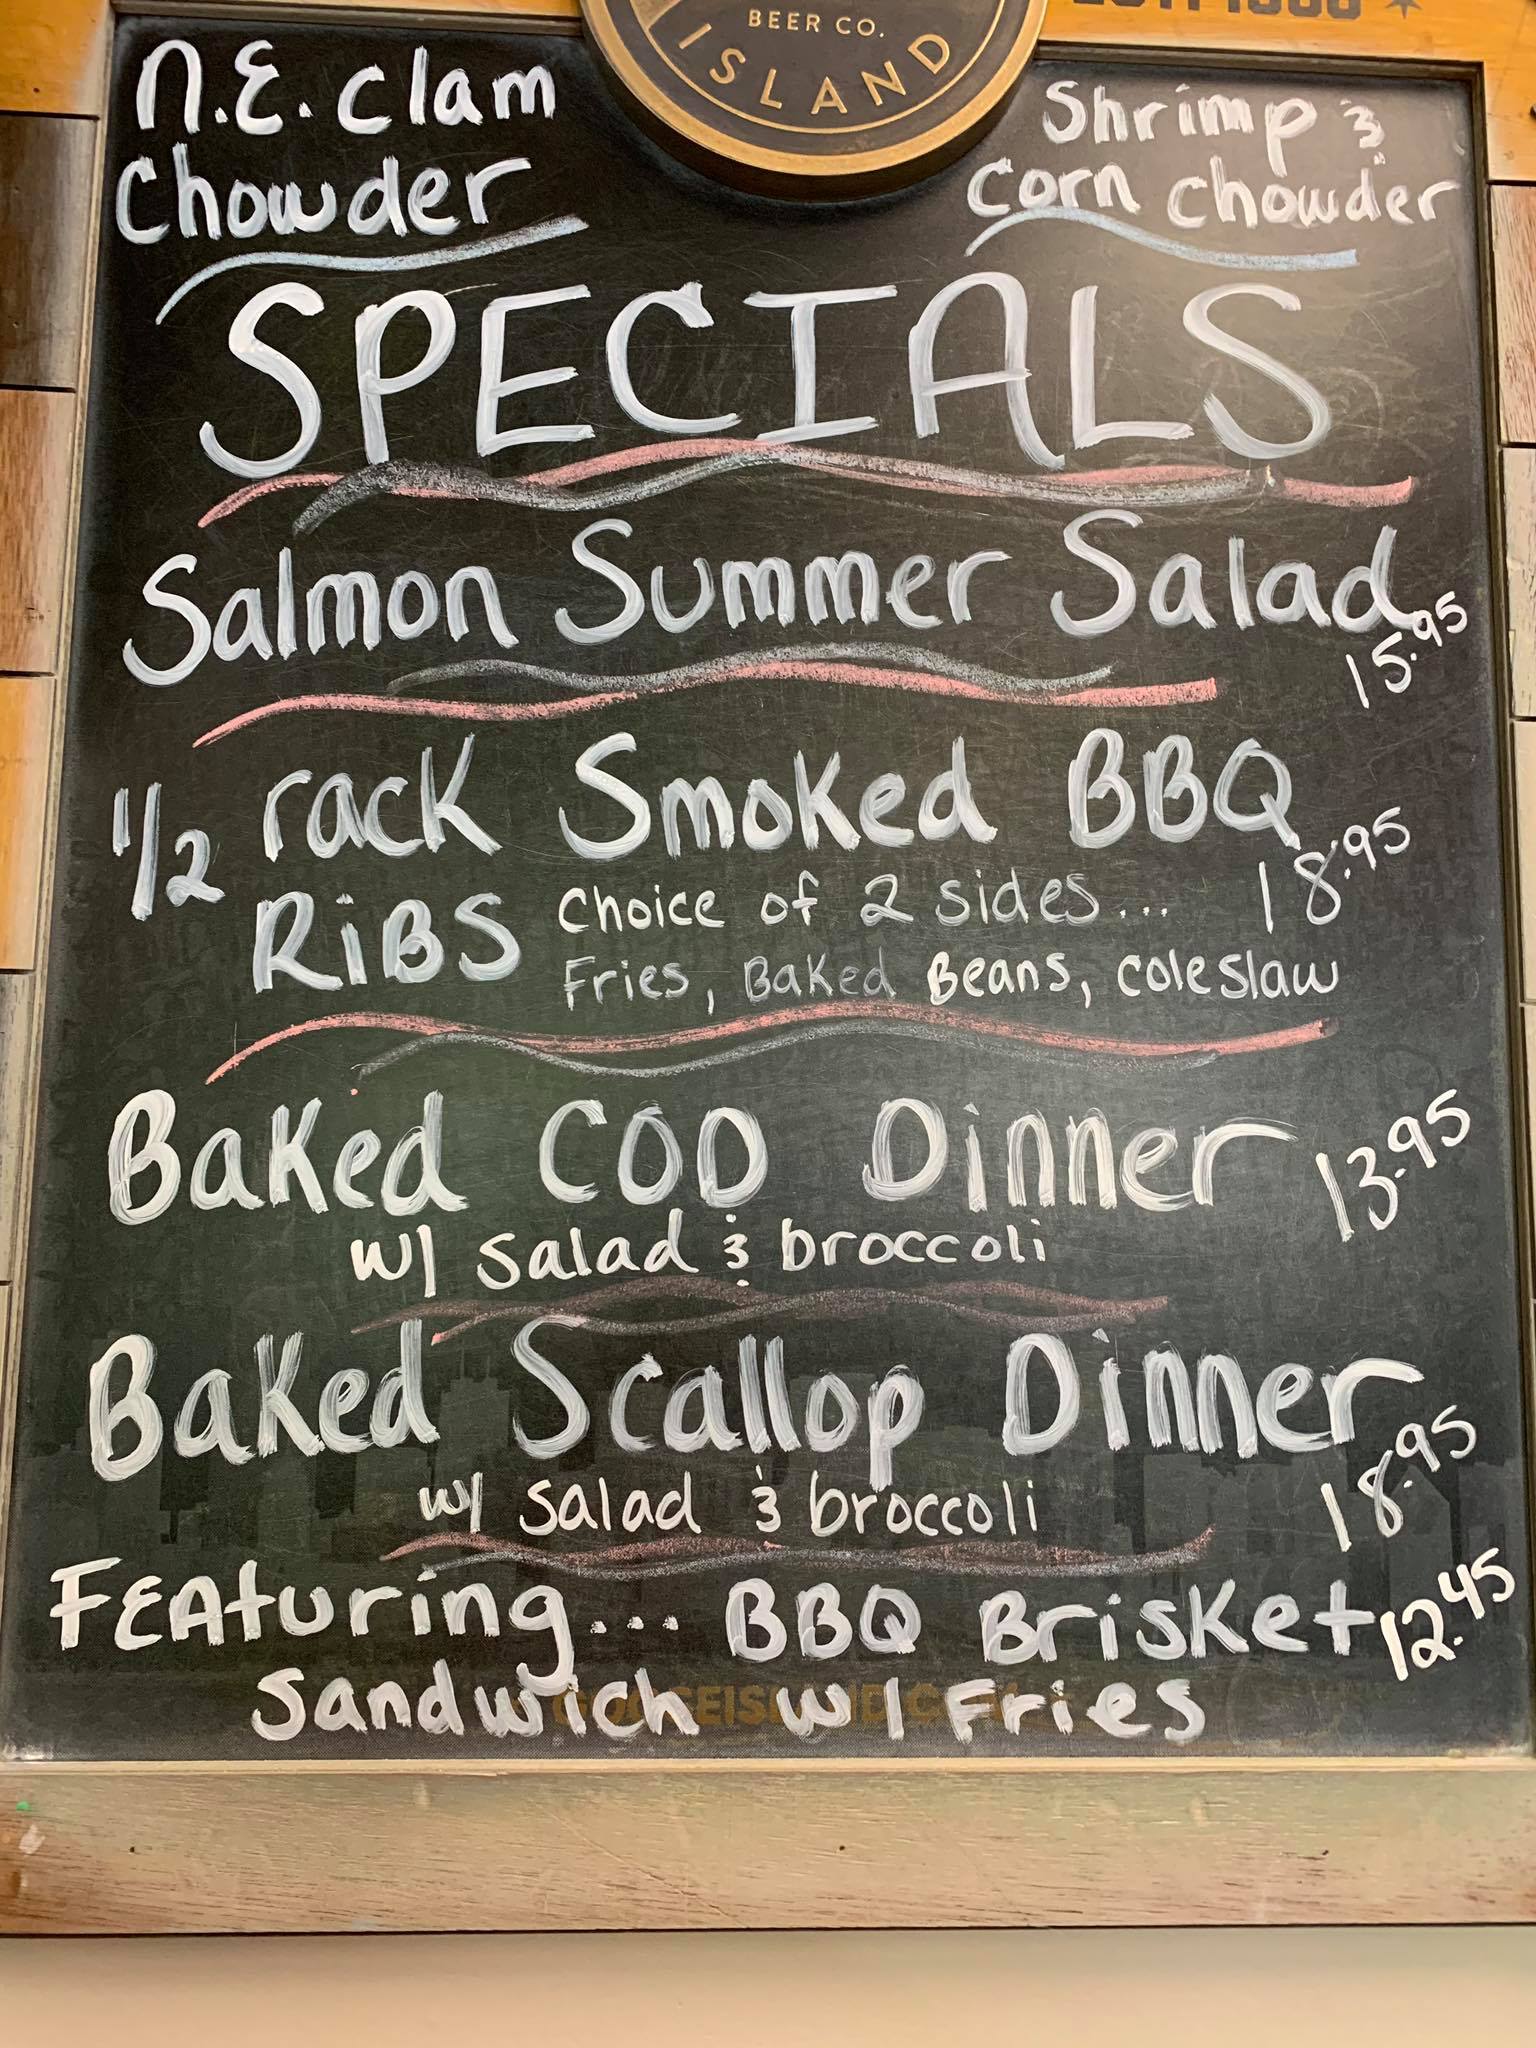 BEER CO.
ISLAND
N.E. Clam
Chowder
Shrimp &
Corn Chowder
SPECIALS
Salmon Summer Salad
15.95
1/2 rack Smoked BBQ
RiBS
18.95
Choice of 2 sides...
Fries, Baked Beans, coleslaw
Baked COD Dinner
13.95
w/ salad & broccoli
Baked Scallop Dinner
18.95
w/ salad & broccoli
FEAturing... BBQ Brisket
12.45
Sandwich w/ Fries